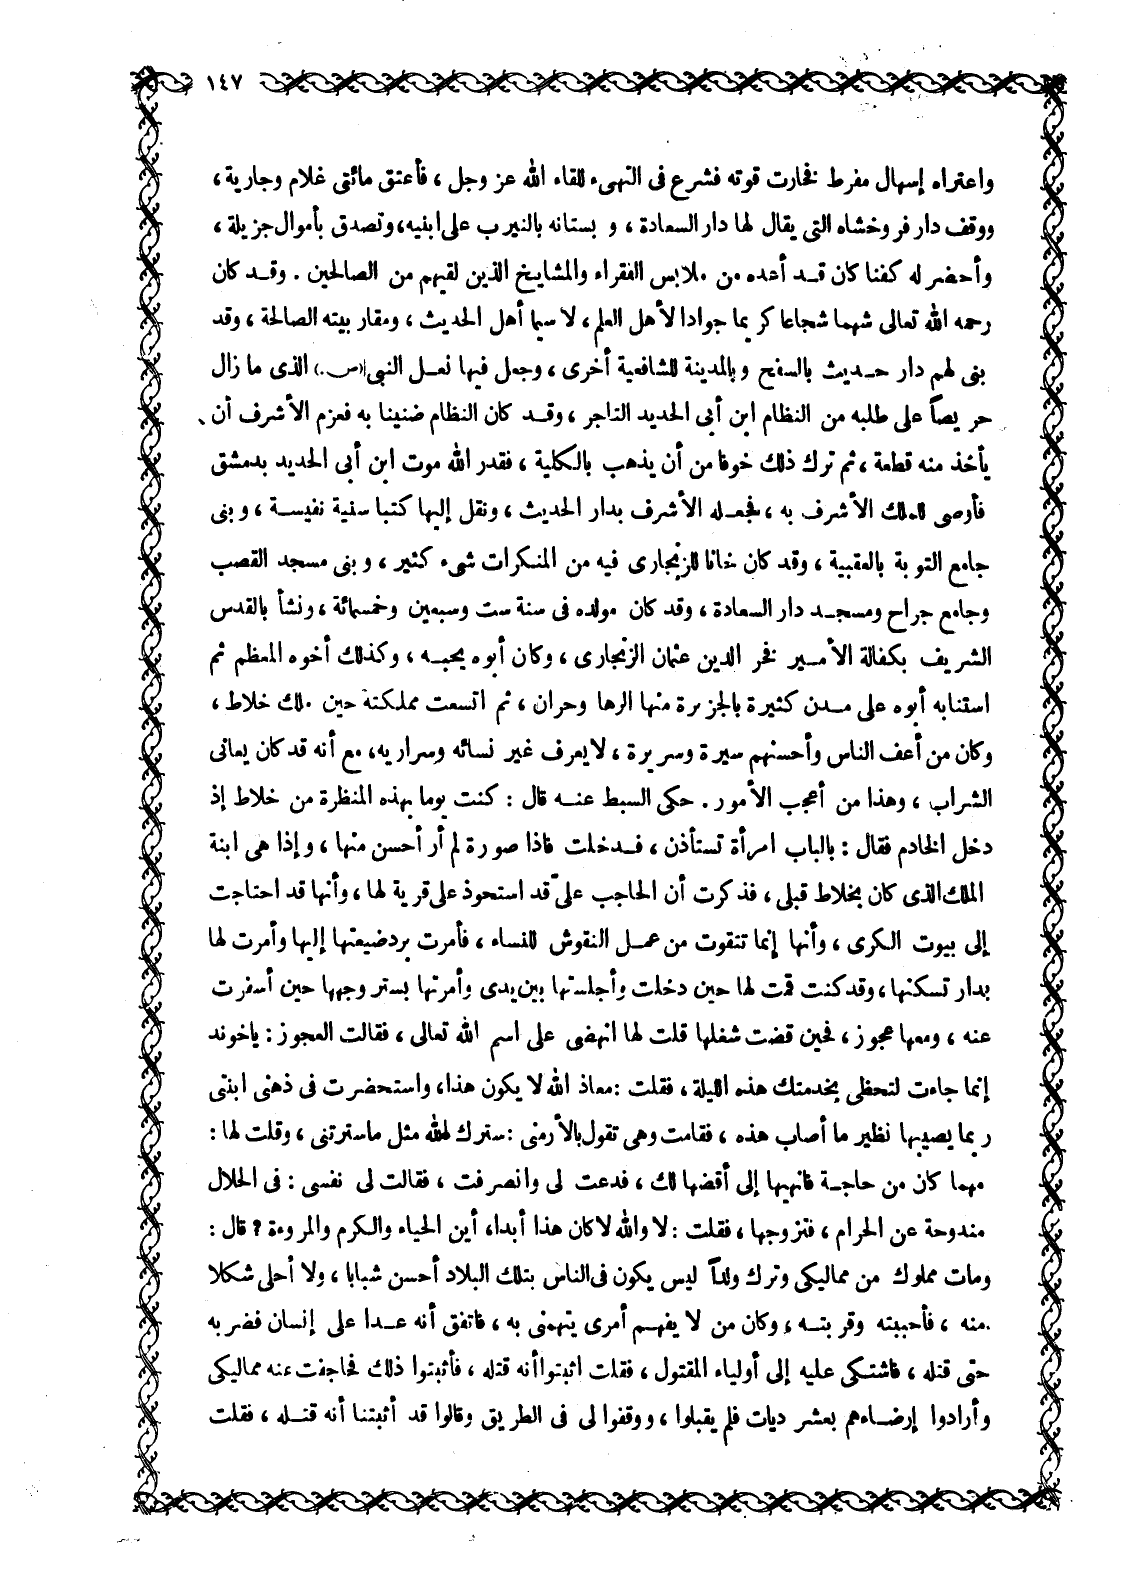 ١٤٧
واعتراه إسهال مفرط فخارت قوته فشرع فى التهىء للقاء الله عز وجل ، فأعتق مائتى غلام وجارية ،
ووقف دار فروخشاه التى يقال لها دار السعادة ، و بستانه بالنيرب على ابنيه، وتصدق بأموال جزيلة ،
وأحضر له كفنا كان قد أعده من ملابس الفقراء والمشايخ الذين لقيهم من الصالحين . وقد كان
رحمه الله تعالى شهما شجاعا كريما جوادا لأهل العلم ، لا سيما أهل الحديث ، ومقار بيته الصالحة ، وقد
بنى لهم دار حديث بالسفح و بالمدينة للشافعية أخرى ، وجعل فيها نعل النبى (ص.) الذى ما زال
حريصاً على طلبه من النظام ابن أبى الحديد التاجر ، وقد كان النظام ضنينا به فعزم الأشرف أن
يأخذ منه قطعة ، ثم ترك ذلك خوفا من أن يذهب بالكلية ، فقدر الله موت ابن أبى الحديد بدمشق
فأرصى للملك الأشرف به ، فجعله الأشرف بدار الحديث ، ونقل إليها كتبا سنية نفيسة ، و بنى
جامع التوبة بالعقبية ، وقد كان خانا للزنجارى فيه من المنكرات شىء كثير ، و بنى مسجد القصب
وجامع جراح ومسجد دار السعادة ، وقد كان مولده فى سنة ست وسبعين وخمسمائة ، ونشأ بالقدس
الشريف بكفالة الأمير فخر الدين عثمان الزنجارى ، وكان أبوه يحبه ، وكذلك أخوه المعظم ثم
استنابه أبوه على مدن كثيرة بالجزيرة منها الرها وحران ، ثم اتسعت مملكته حين ملك خلاط ،
وكان من أعف الناس وأحسنهم سيرة وسريرة ، لا يعرف غير نسائه وسراريه ، مع أنه قد كان يعانى
الشراب ، وهذا من أعجب الأمور . حكى السبط عنه قال : كنت يوما بهذه المنظرة من خلاط إذ
دخل الخادم فقال : بالباب امرأة تستأذن ، فدخلت فاذا صورة لم أر أحسن منها ، و إذا هى ابنة
الملك الذى كان بخلاط قبلى ، فذكرت أن الحاجب علىّ قد استحوذ على قرية لها ، وأنها قد احتاجت
إلى بيوت الكرى ، وأنها إنما تتقوت من عمل النقوش للنساء ، فأمرت برد ضيعتها إليها وأمرت لها
بدار تسكنها ، وقد كنت قمت لها حين دخلت وأجلستها بين يدى وأمرتها بستر وجهها حين أسفرت
عنه ، ومعها عجوز ، فحين قضت شغلها قلت لها انهضى على اسم الله تعالى ، فقالت العجوز : ياخوند
إنما جاءت لتحظى بخدمتك هذه الليلة ، فقلت : معاذ الله لا يكون هذا، واستحضرت فى ذهنى ابنتى
ربما يصيبها نظير ما أصاب هذه ، فقامت وهى تقول بالأرمنى : سترك الله مثل ماسترتنى ، وقلت لها :
مهما كان من حاجة فانهيها إلى أقضها لك ، فدعت لى وانصرفت ، فقالت لى نفسى : فى الحلال
مندوحة عن الحرام ، فتزوجها ، فقلت : لا والله لا كان هذا أبدا، أين الحياء والكرم والمروءة ؟ قال :
ومات مملوك من مماليكى وترك ولداً ليس يكون فى الناس بتلك البلاد أحسن شبابا ، ولا أحلى شكلا
منه ، فأحببته وقربته ، وكان من لا يفهم أمرى يتهمنى به ، فاتفق أنه عدا على إنسان فضربه
حتى قتله ، فاشتكى عليه إلى أولياء المقتول ، فقلت اثبتوا أنه قتله ، فأثبتوا ذلك فحاجفت عنه مماليكى
وأرادوا إرضاءهم بعشر ديات فلم يقبلوا ، ووقفوا لى فى الطريق وقالوا قد أثبتنا أنه قتله ، فقلت